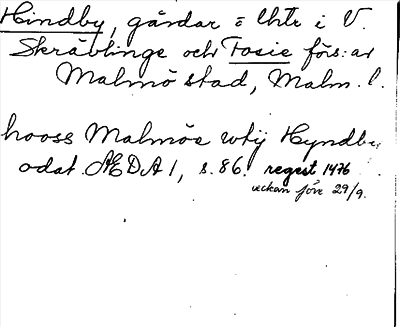 Hindby, gårdar o lhtr i V.
Skrävlinge och Fosie förs:ar
Malmö stad, Malm. l.
hooss Malmöe wtij Hyndby
odat. ÆDA 1, s. 86. regest 1476
veckan före 29/9.